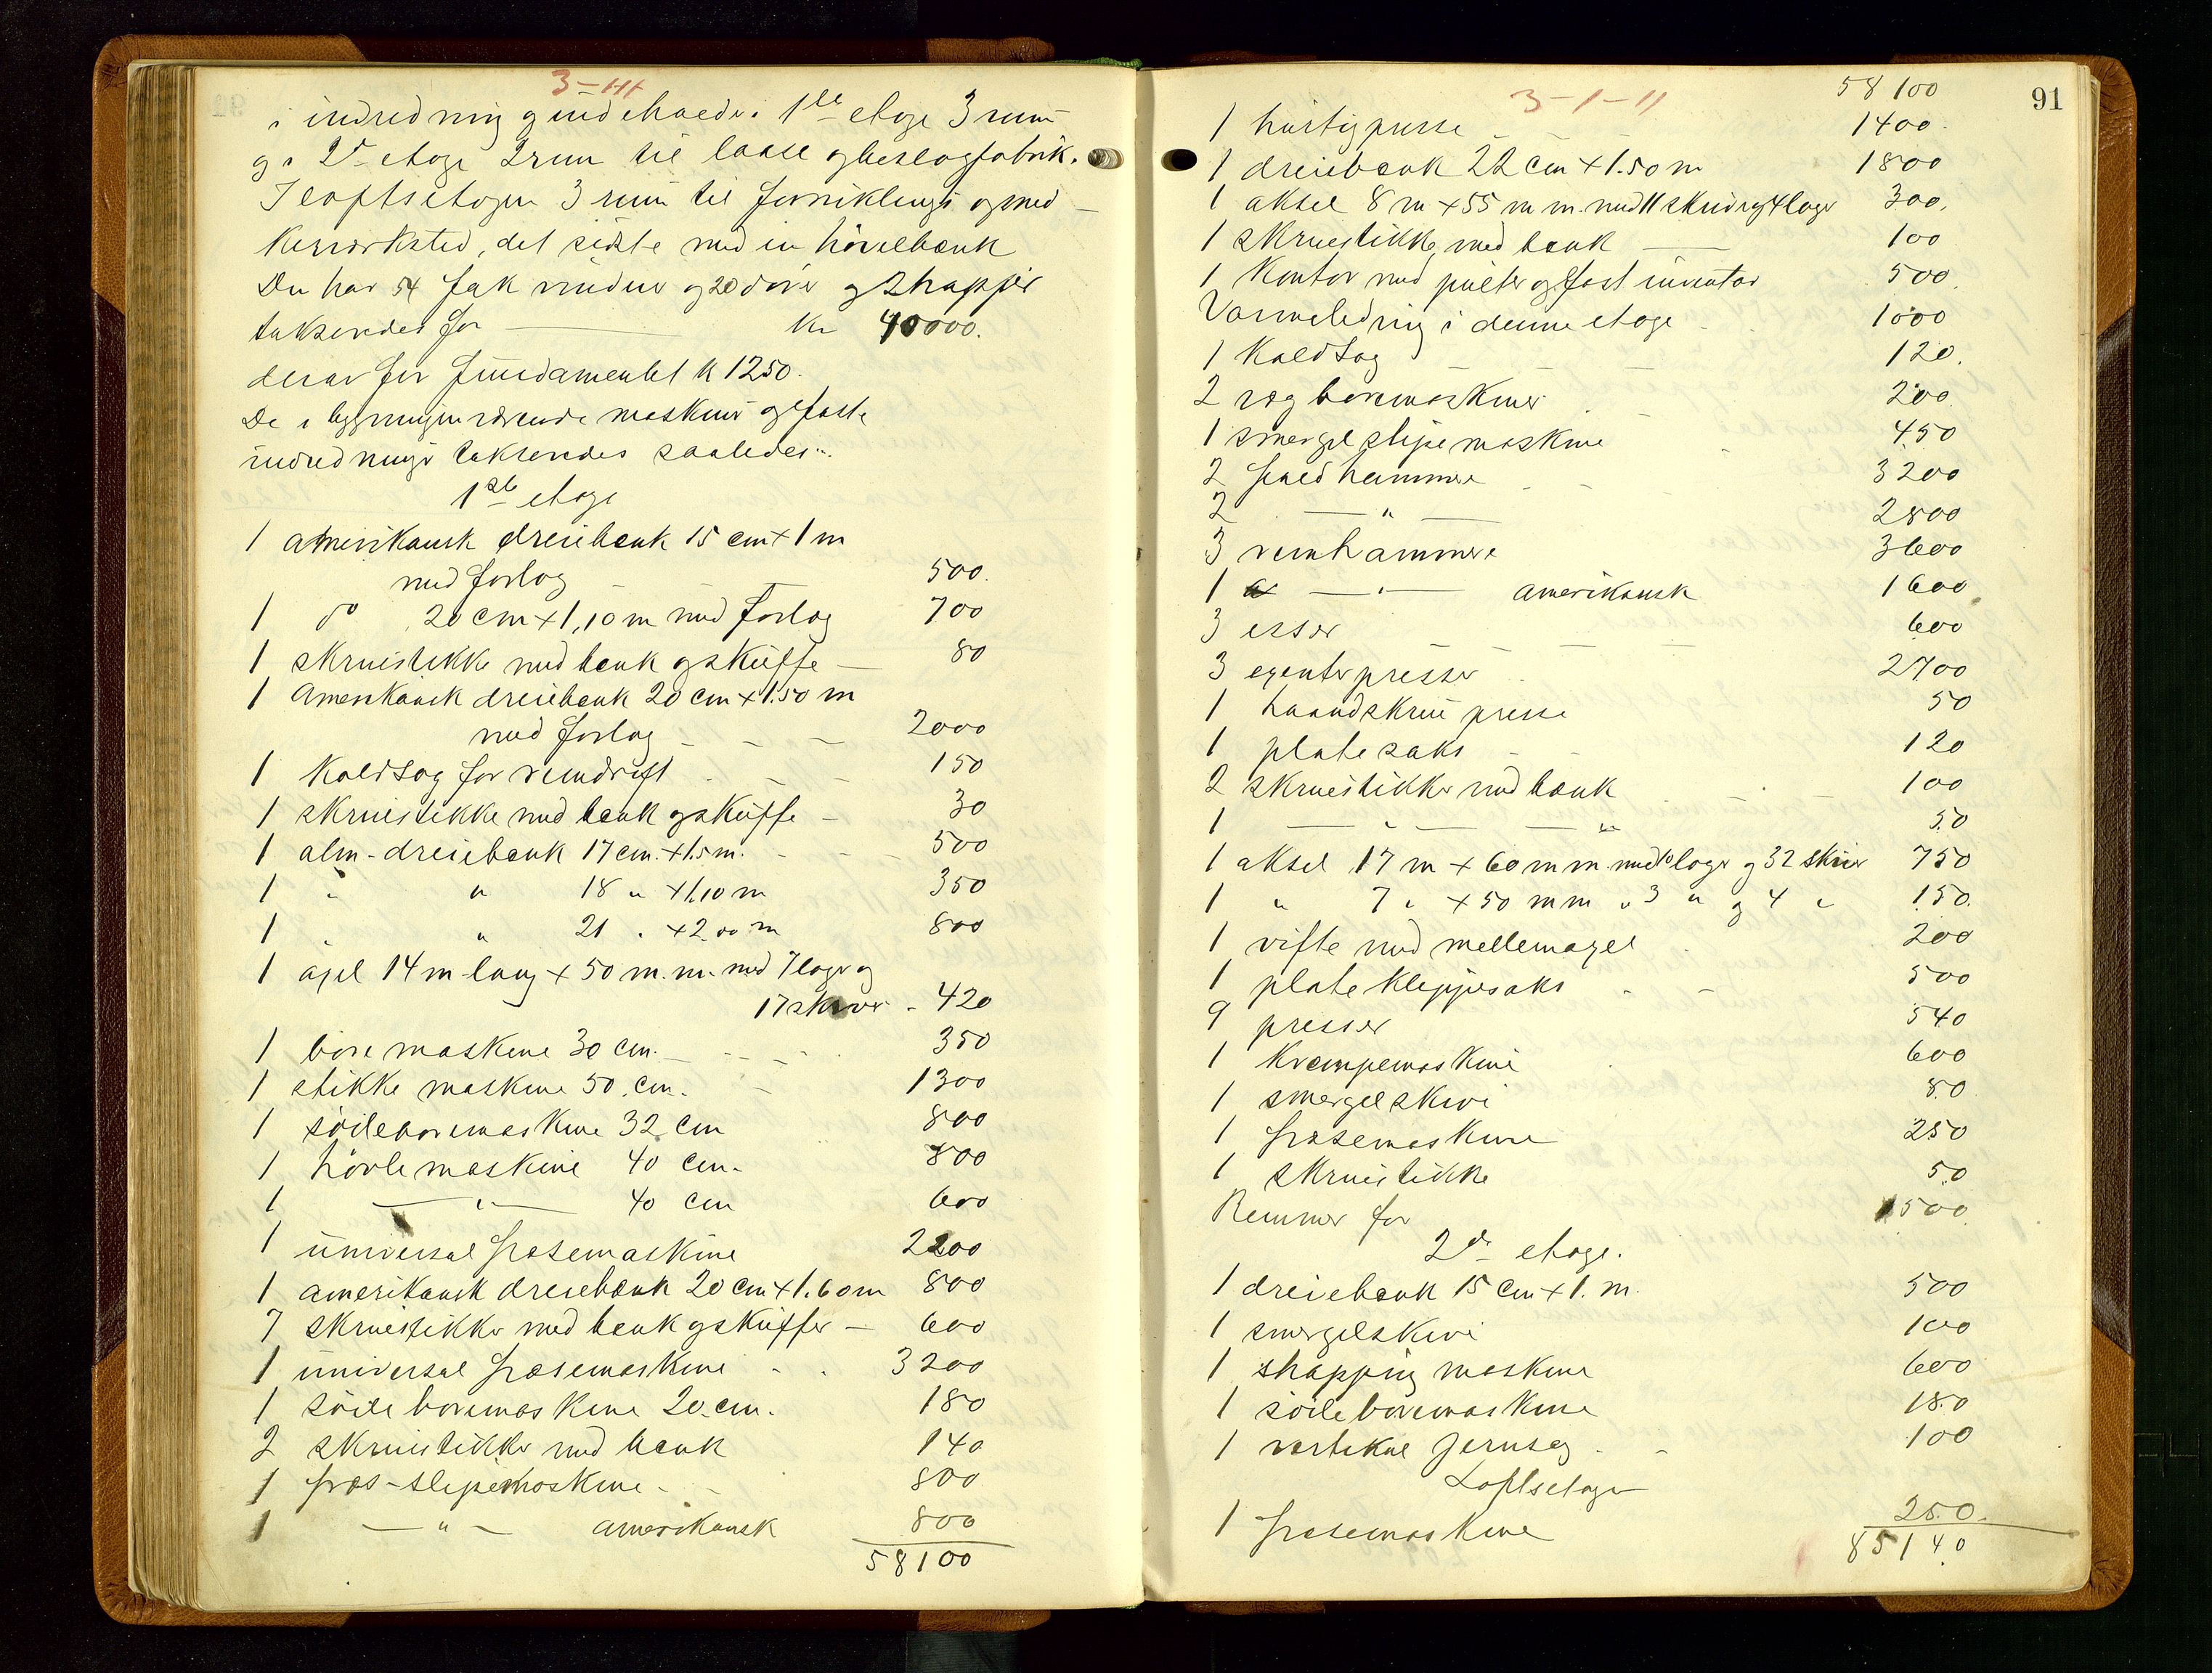 3-1-11
i indredning og indeholder i 1ste etage 3 rum
og i 2d etage 2 rum til laase og beslagfabrik.
I loftsetagen 3 rum til forniklings og sned-
kerværksted, det sidste med en hövelbænk
Den har 54 fak vinduer og 20 döre og 2 trapper
takseredes for Kr 40000.
derav for fundamentet kr 1250.
De i bygningen værende maskiner og faste
indredninger takseredes saaledes:
1ste etage
1 amerikansk dreiebænk 15 cm + 1 m
med forlag 500.
1 do 20 cm + 1,10 m med forlag 700
1 skruestikke med bænk og skuffe 80
1 Amerikansk dreiebænk 20 cm + 1.50 m
med forlag 2000
1 Koldsag for remdrift 150
1 skruestikke med bænk og skuffe 30
1 alm-dreiebænk 17 cm. + 1.5 m. 500
1 " " 18 " + 1.10 m 350
1 " " 21 " + 2.00 m 800
1 axel 14 m lang + 50 m.m. med 7 lager og
17 skiver 420
1 bore maskine 30 cm. 350
1 stikke maskine 50. cm. 1300
1 söileboremaskine 32 cm 800
1 hövle maskine 40 cm. 800
1 —"— 40 cm 600
1 universal fræsemaskine 2200
1 amerikansk dreiebænk 20 cm + 1.60 m 800
7 skruestikker med bænk og skuffer 600
1 universal fræsemaskine 3200
1 söile boremaskine 20. cm. 180
2 skruestikker med bænk 140
1 fræs-slipemaskine 800
1 —"— amerikansk 800
58100
91
3-1-11
58100
1 hurtigpresse 1400
1 dreiebænk 22 cm + 1.50 m 1800
1 aksel 8 m + 55 m m. med 11 skiver og 4 lager 300.
1 skruestikke med bænk 100
1 Kontor med pulter og fast inventar 500.
Varmeledning i denne etage 1000
1 Koldsag 120.
2 væg boremaskiner 200
1 smergel slipe maskine 450
2 faldhammere 3200
2 —"— 2800
3 remhammere 3600
1 —"— amerikansk 1600
3 esser 600
3 exenterpresser 2700
1 haandskrue presse 50
1 plate saks 120
2 skruestikker med bænk 100
1 —"— —"— 50
1 aksel 17 m + 60 m m. med 10 lager og 32 skiver 750
1 " 7 " + 50 m m " 3 " og 4 " 150.
1 vifte med mellemaxel 200
1 plate klippesaks 500
9 presser 540
1 Krempemaskine 600
1 smergelskive 80
1 fræsemaskine 250
1 skruestikke 50
Remmer for 1500
2d etage.
1 dreiebænk 15 cm + 1. m. 500
1 smergelskive 100
1 shapping maskine 600
1 söileboremaskine 180
1 vertikal jernsag 100
Loftsetagen
1 fræsemaskine 250.
85140